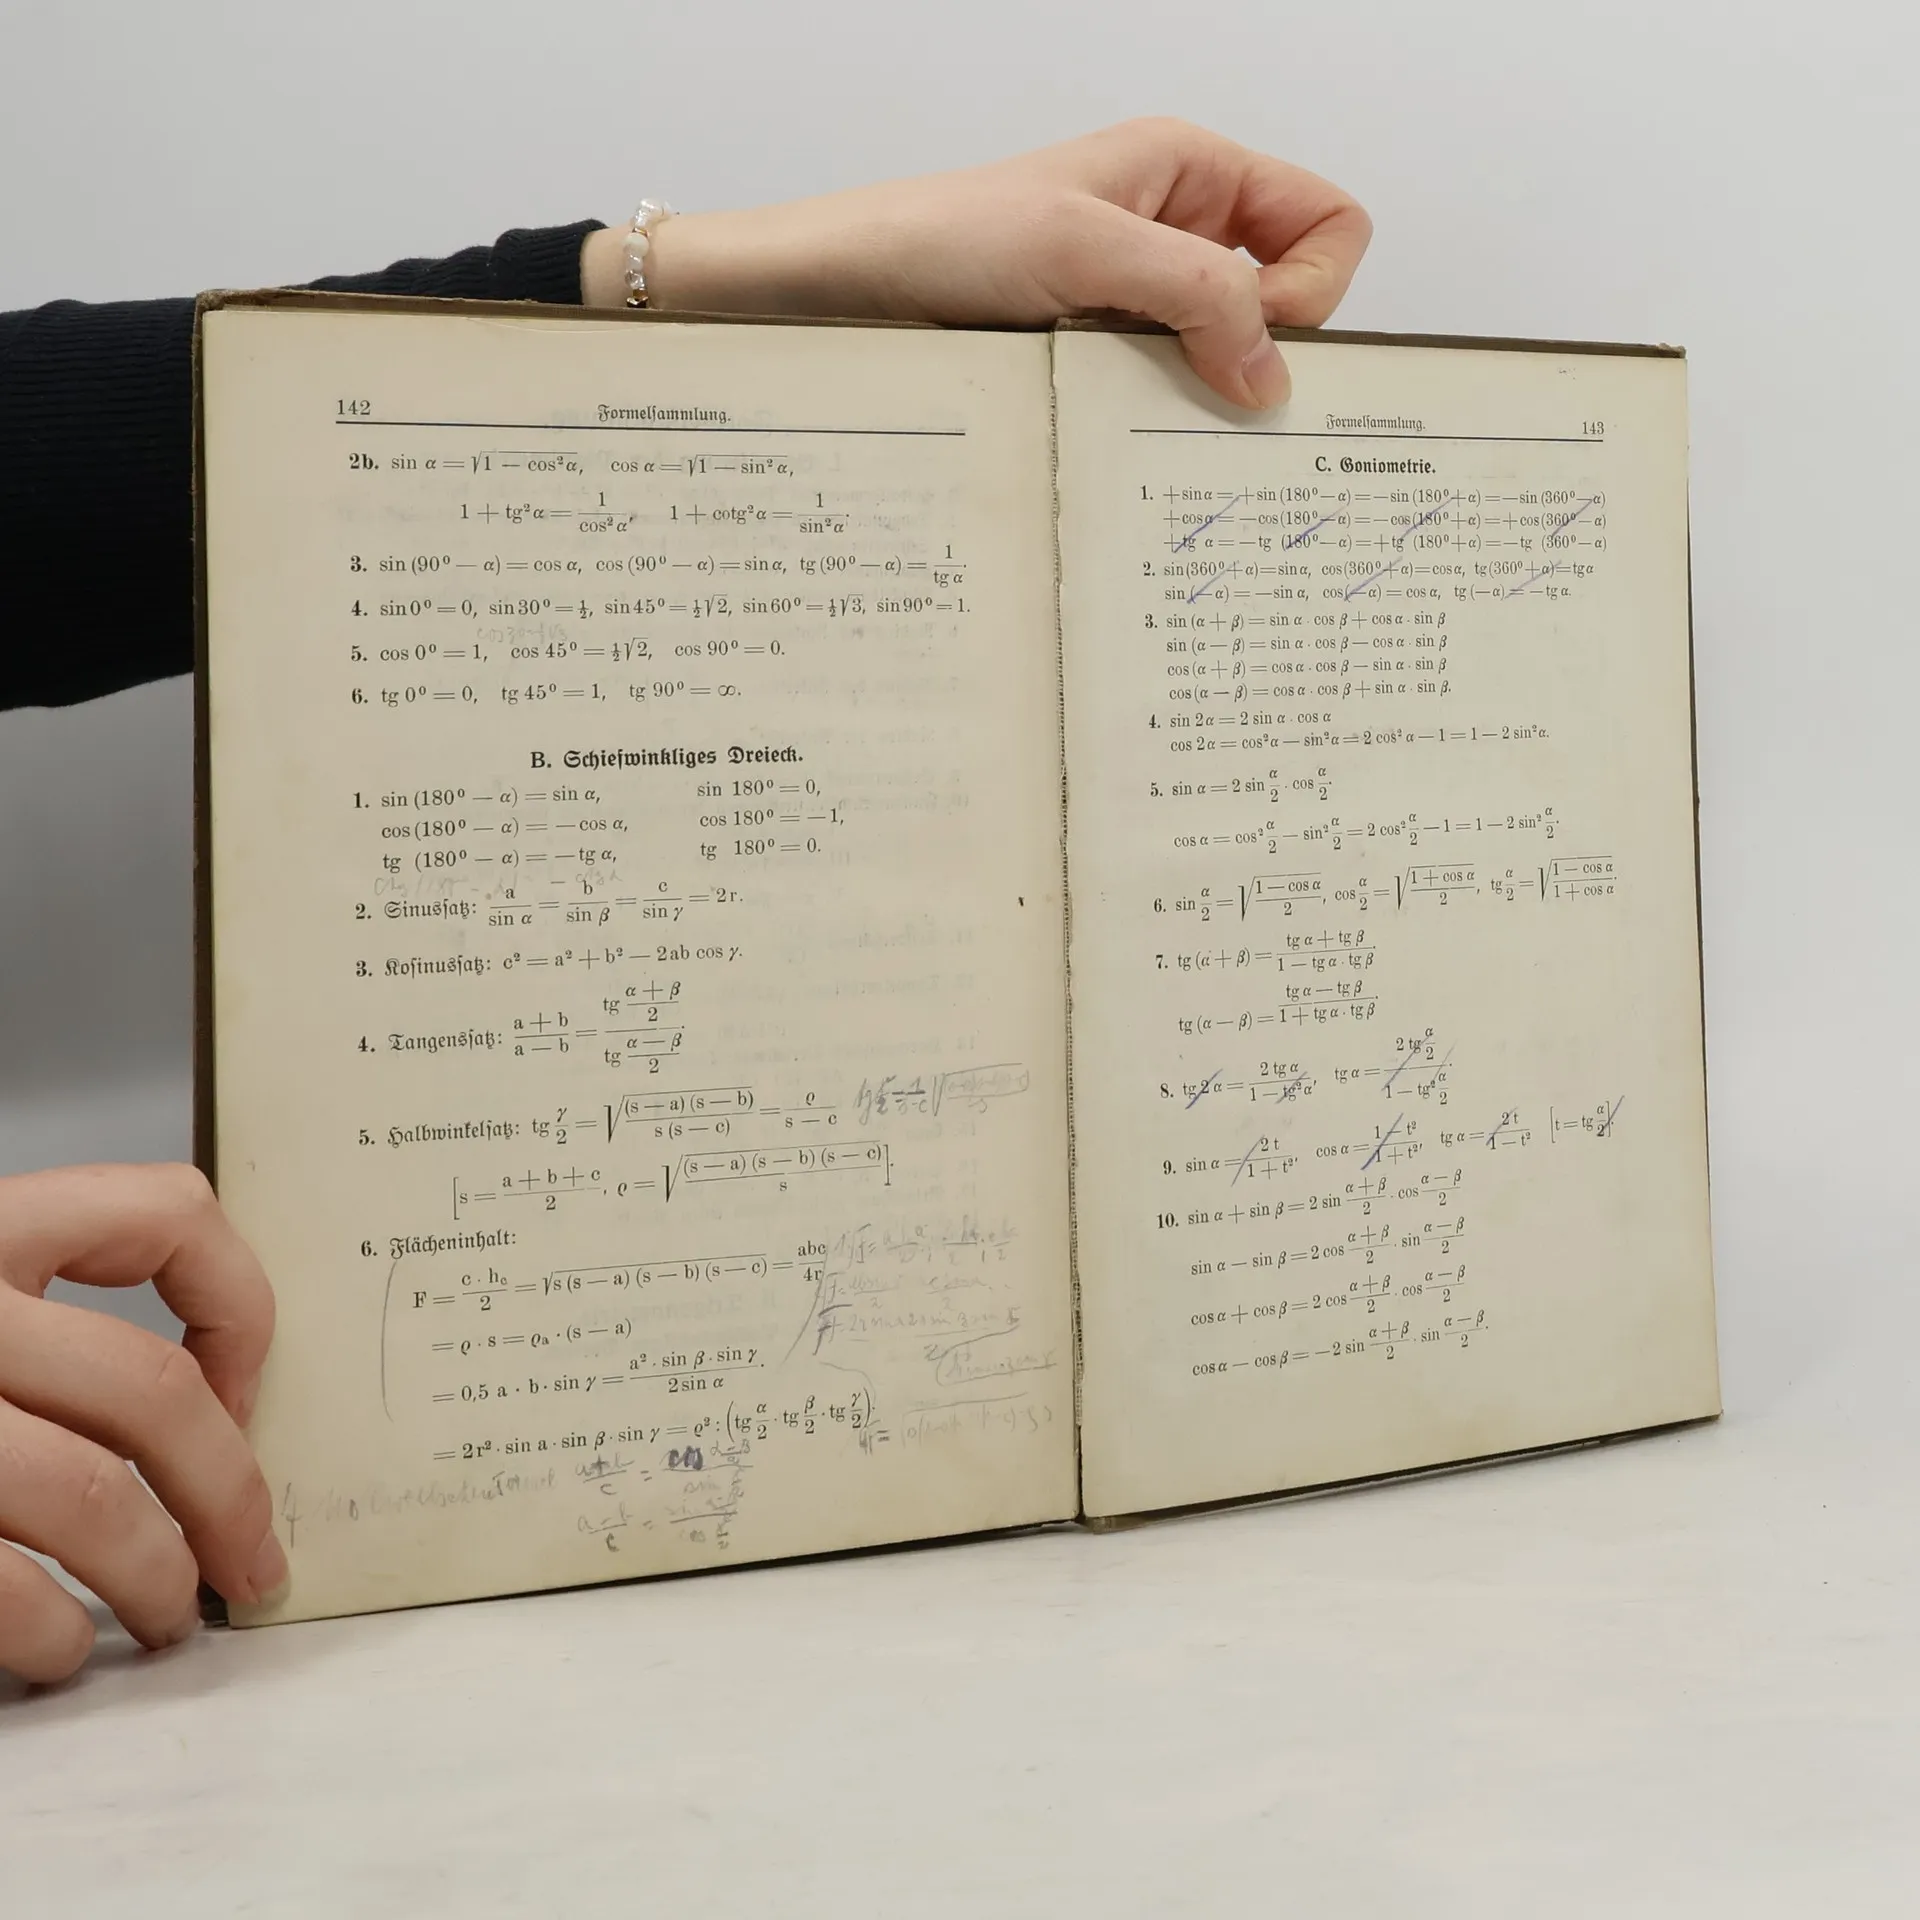 142 Formelſammlung.
2b. sin α = √(1 − cos²α), cos α = √(1 − sin²α),
1 + tg²α = 1/cos²α, 1 + cotg²α = 1/sin²α.
3. sin (90⁰ − α) = cos α, cos (90⁰ − α) = sin α, tg (90⁰ − α) = 1/tg α.
4. sin 0⁰ = 0, sin 30⁰ = ½, sin 45⁰ = ½√2, sin 60⁰ = ½√3, sin 90⁰ = 1.
5. cos 0⁰ = 1, cos 45⁰ = ½√2, cos 90⁰ = 0.
6. tg 0⁰ = 0, tg 45⁰ = 1, tg 90⁰ = ∞.
B. Schiefwinkliges Dreieck.
1. sin (180⁰ − α) = sin α, sin 180⁰ = 0,
cos (180⁰ − α) = −cos α, cos 180⁰ = −1,
tg (180⁰ − α) = −tg α, tg 180⁰ = 0.
2. Sinusſatz: a/sin α = b/sin β = c/sin γ = 2r.
3. Koſinusſatz: c² = a² + b² − 2ab cos γ.
4. Tangensſatz: (a + b)/(a − b) = tg (α + β)/2 / tg (α − β)/2.
5. Halbwinkelſatz: tg γ/2 = √((s − a) (s − b)/s (s − c)) = ϱ/(s − c)
[s = (a + b + c)/2, ϱ = √((s − a) (s − b) (s − c)/s)].
6. Flächeninhalt:
F = c · h_c/2 = √(s (s − a) (s − b) (s − c)) = abc/4r
= ϱ · s = ϱₐ · (s − a)
= 0,5 a · b · sin γ = a² · sin β · sin γ/2 sin α.
= 2 r² · sin a · sin β · sin γ = ϱ² : (tg α/2 · tg β/2 · tg γ/2).
Formelſammlung. 143
C. Goniometrie.
1. +sin α = +sin (180⁰ − α) = −sin (180⁰ + α) = −sin (360⁰ − α)
+cos α = −cos (180⁰ − α) = −cos (180⁰ + α) = +cos (360⁰ − α)
+tg α = −tg (180⁰ − α) = +tg (180⁰ + α) = −tg (360⁰ − α)
2. sin (360⁰ + α) = sin α, cos (360⁰ + α) = cos α, tg (360⁰ + α) = tg α
sin (−α) = −sin α, cos (−α) = cos α, tg (−α) = −tg α.
3. sin (α + β) = sin α · cos β + cos α · sin β
sin (α − β) = sin α · cos β − cos α · sin β
cos (α + β) = cos α · cos β − sin α · sin β
cos (α − β) = cos α · cos β + sin α · sin β.
4. sin 2α = 2 sin α · cos α
cos 2α = cos²α − sin²α = 2 cos²α − 1 = 1 − 2 sin²α.
5. sin α = 2 sin α/2 · cos α/2.
cos α = cos² α/2 − sin² α/2 = 2 cos² α/2 − 1 = 1 − 2 sin² α/2.
6. sin α/2 = √((1 − cos α)/2), cos α/2 = √((1 + cos α)/2), tg α/2 = √((1 − cos α)/(1 + cos α)).
7. tg (α + β) = (tg α + tg β)/(1 − tg α · tg β).
tg (α − β) = (tg α − tg β)/(1 + tg α · tg β).
8. tg 2α = 2 tg α/(1 − tg²α), tg α = 2 tg α/2 / (1 − tg² α/2).
9. sin α = 2t/(1 + t²), cos α = (1 − t²)/(1 + t²), tg α = 2t/(1 − t²) [t = tg α/2].
10. sin α + sin β = 2 sin (α + β)/2 · cos (α − β)/2
sin α − sin β = 2 cos (α + β)/2 · sin (α − β)/2
cos α + cos β = 2 cos (α + β)/2 · cos (α − β)/2
cos α − cos β = −2 sin (α + β)/2 · sin (α − β)/2.